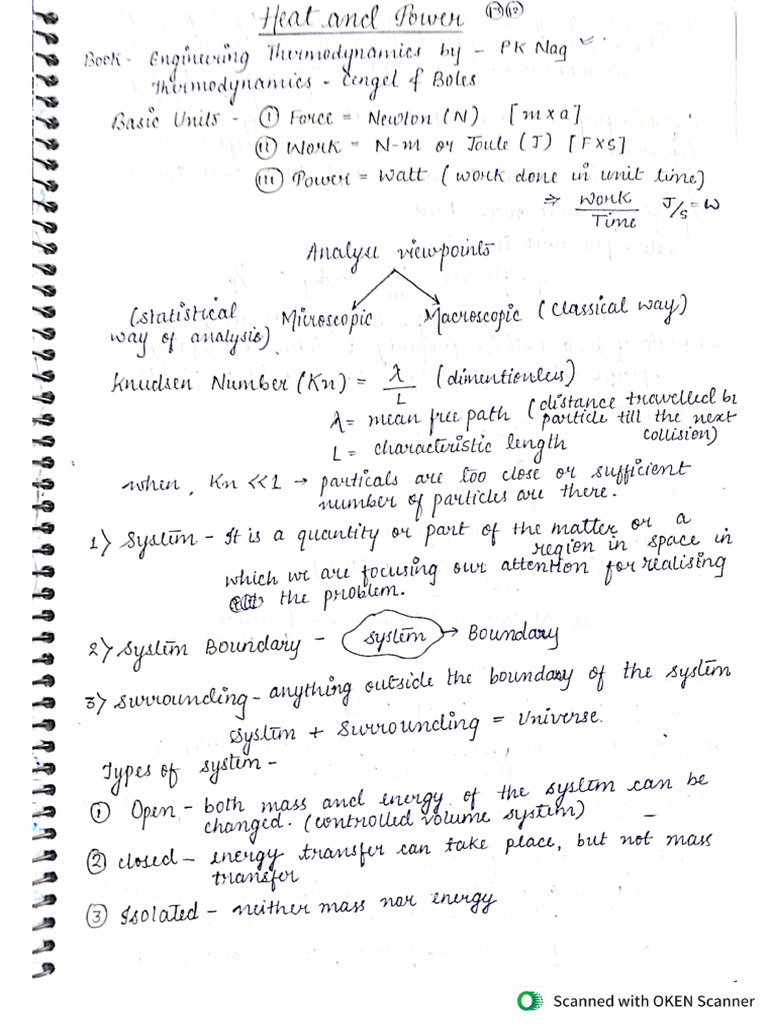 Heat and Power
Book - Engineering Thermodynamics by - PK Nag
Thermodynamics - Cengel & Boles
Basic Units - ① Force = Newton (N) [m x a]
ⅱ Work = N-m or Joule (J) [F x s]
ⅲ Power = Watt (work done in unit time)
⇒ Work / Time J/s = W
Analyse viewpoints
(statistical way of analysis) Microscopic Macroscopic (classical way)
Knudsen Number (Kn) = λ / L (dimentionless)
λ = mean free path (distance travelled by
particle till the next
collision)
L = characteristic length
when, Kn <<1 → particals are too close or sufficient
number of particles are there.
1) System - It is a quantity or part of the matter or a
region in space in
which we are focusing our attention for realising
the problem.
2) System Boundary - System → Boundary
3) Surrounding - anything outside the boundary of the system
System + Surrounding = Universe.
Types of system -
① Open - both mass and energy of the system can be
changed. (controlled volume system)
② closed - energy transfer can take place, but not mass
transfer
③ Isolated - neither mass nor energy
Scanned with OKEN Scanner